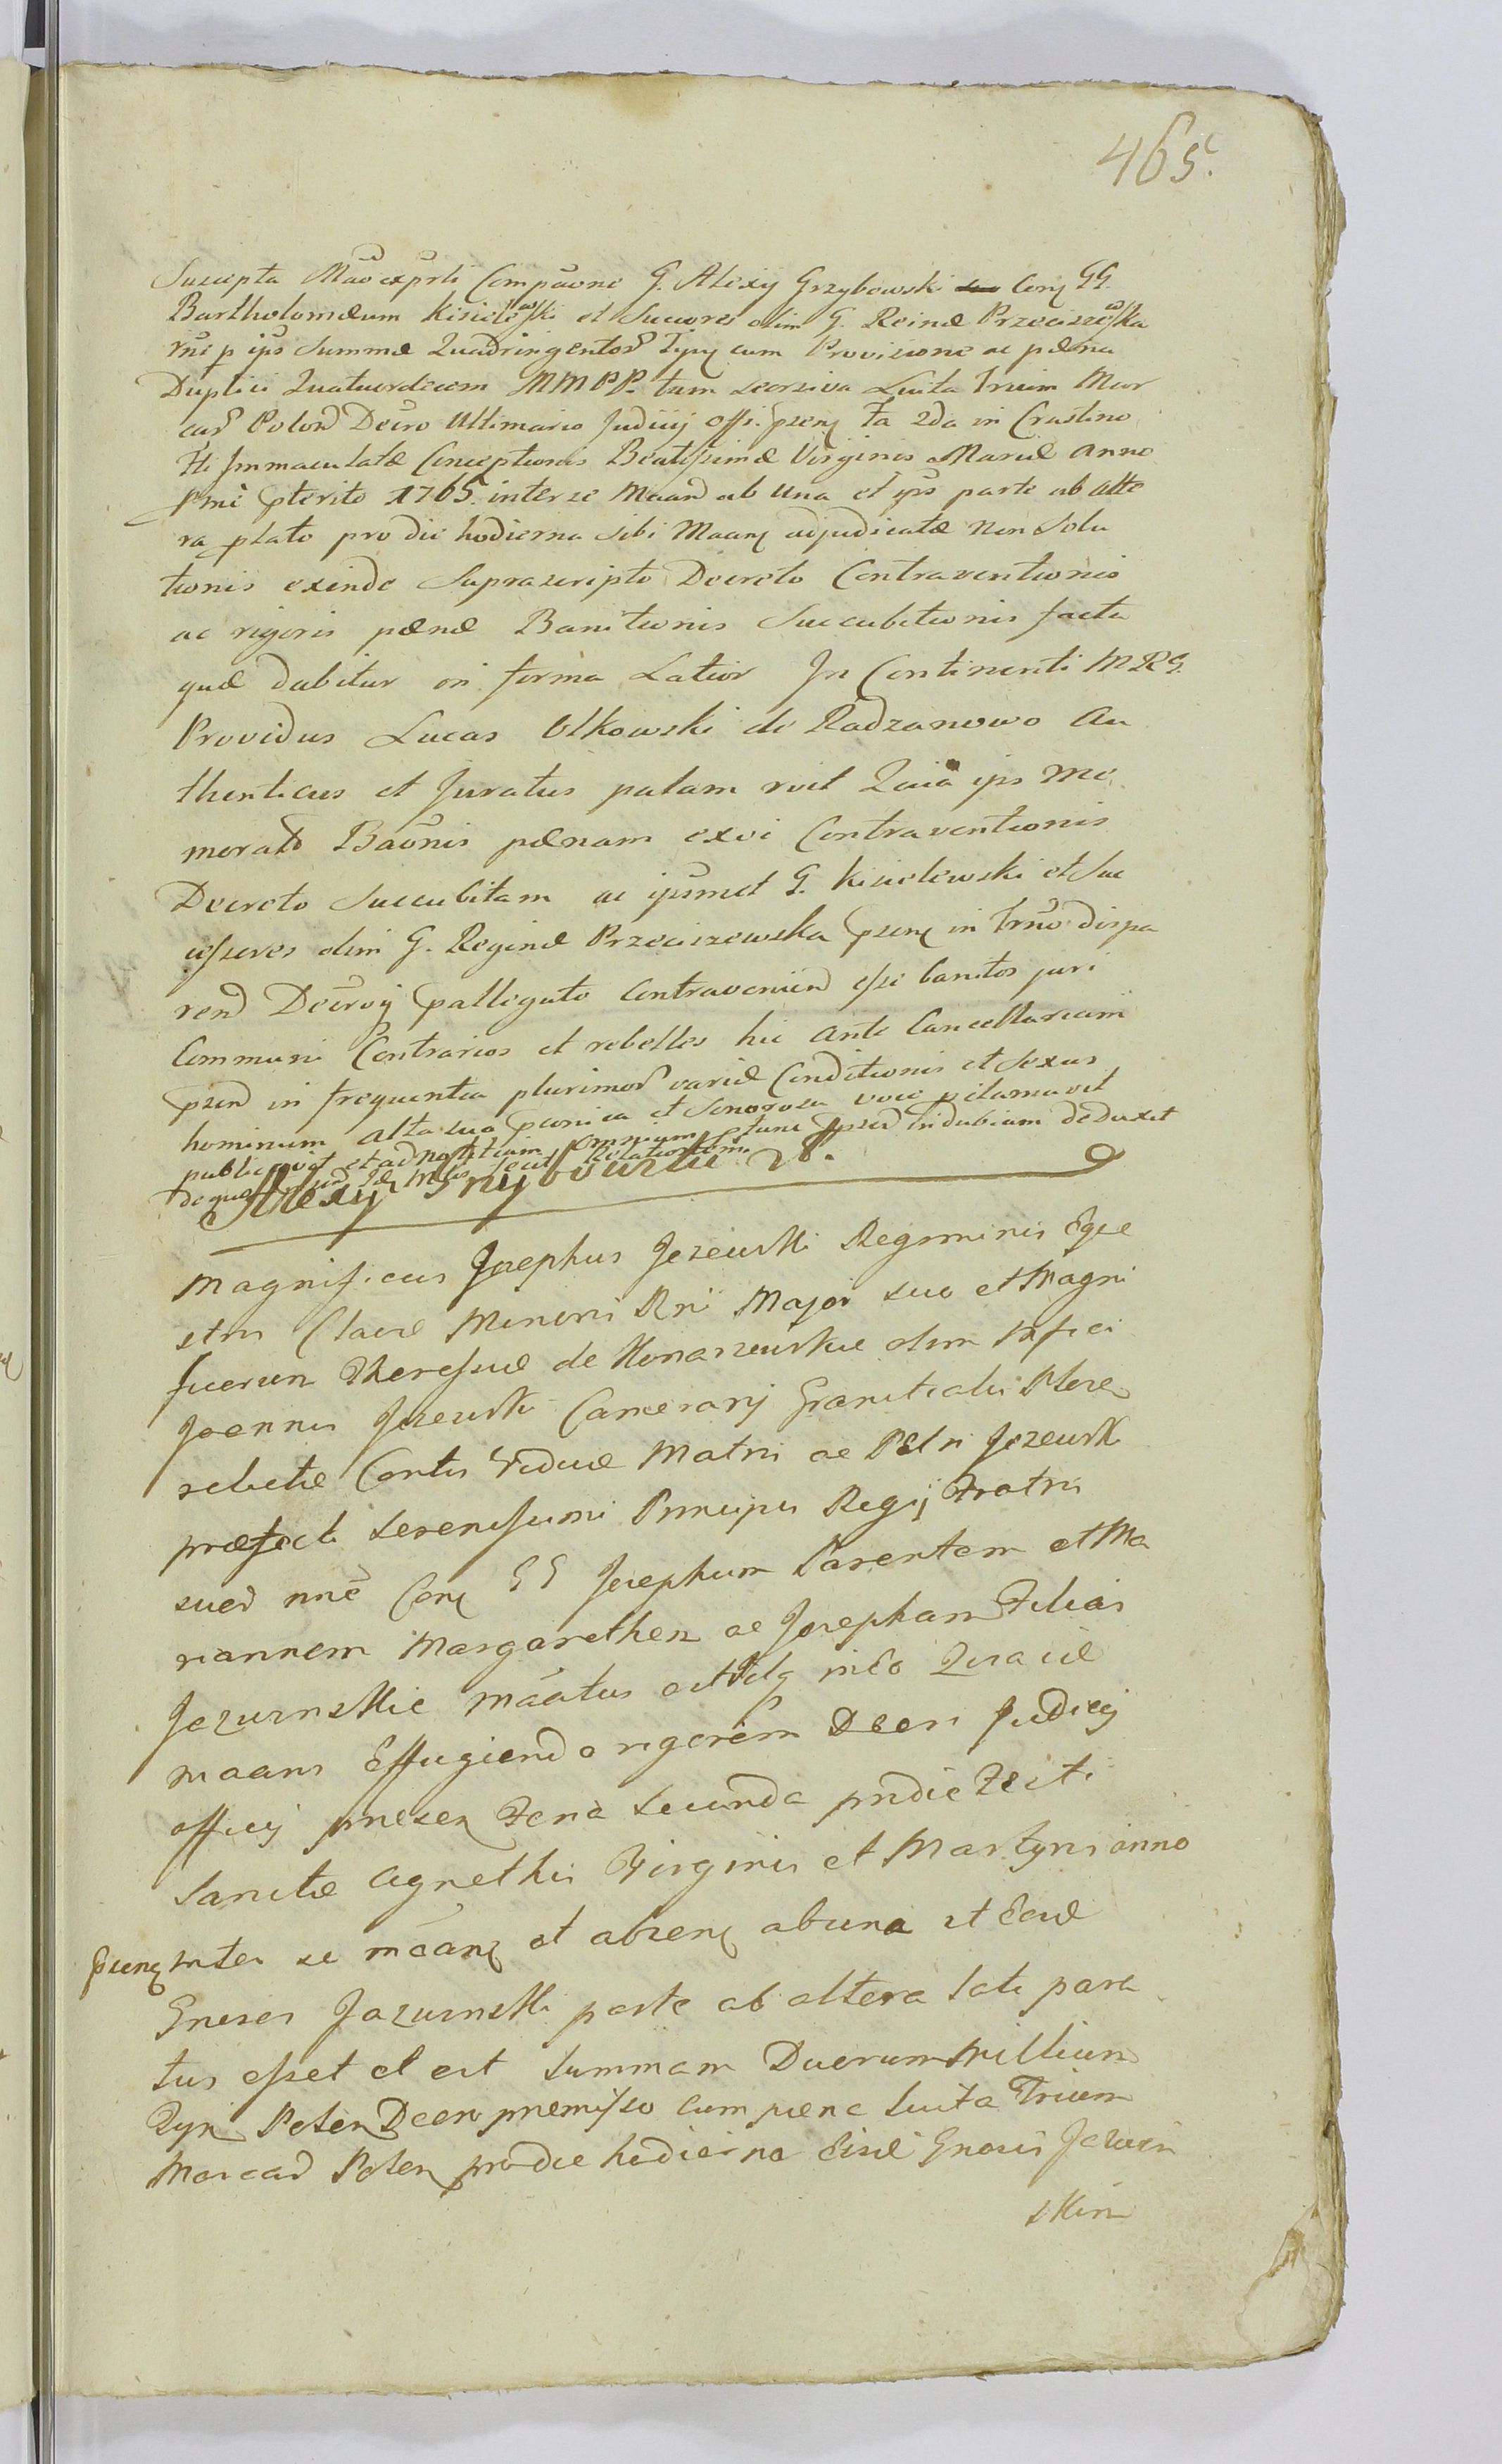 465.
Suscepta Mãо exprti Compãone G. Alexy Grzybowski Conq GG.
Bartholomæum Kisielewski et Succores olim G. Reinæ Przeciszewska
rne p ips Summæ Quadringentor Typq cum Provisione ac pæna
Duplici Quatuordecem MMPP. tum seorsiva Luita Trium Mar
car Polon Decro Ultimario Judicij offi. psenq fa 2da in Crastino
fti Immaculatæ Conceptionis Beatissimæ Virginis Mariæ Anno
pmè pterito 1765. inter se Maan ab Una et ips parte ab Alte
ra plato pro die hodierna sibi Maanq adjudicatæ non Solu
tionis exinde Suprascripto Decreto Contraventionis
ac rigoris pænæ Banitionis Succubitionis facta
quæ dabitur in forma Latior In Continenti MRG.
Providus Lucas Olkowski de Radzanowo Au
thenticus et Juratus palam rvit Quia ips Me
morato Baõnis pænam exvi Contraventionis
Decreto Succubitam ac ipsmet G. Kisielewski et Suc
cessores olim G. Reginæ Przeciszewska psenq in Trno dispa
rend Decroq pallegato Contraveniend esse banitos juri
Communi Contrarios et rebelles hic Ante Cancellariam
psen in frequentia plurimor variæ Conditionis et Sexus
hominum Alta sua pconica et Sonorosa voce pclamavit
publicavit et ad notitiam omnium tunc psen indubiam deduxit
de quo Relationem.
Alexy Grzybowski
Magnificus Josephus Jezewski Regiminis Eque
stris Clavæ Minoris Rni Major suo et Magni
ficorum Theressiæ de Konarzewskie olim Mfici
Joannis Jezewski Camerarij Granitialis Plocen
relictæ Contis Viduæ Matris ac Petri Jezewsk
præfecti Serenissimi Principis Regij Fratris
suor nnẽ Conq GG Josephum Parentem et Ma
riannem Margarethen ac Josepham Filias
Jezurnskie mãatus est Idq ineo Quaciæ
maans Effugiendo rigorem Decri Judicij
officij presen Feria Secunda pridie Festi
Sanctæ Agnethis Virginis et Martyris anno
psenq inter se mãanq et absenq ab una et Eosd
Gneses Jazurnski parte ab altera lati para
tus esset et est Summam Duorum Millium
Typr Polon Decro premisso cum pæna luita Trium
Marcar Polon pro die hodierna Eisd Gnosis Jazurn
skim